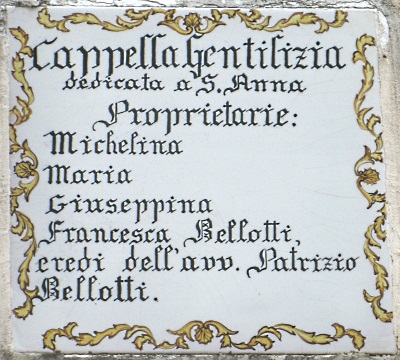 Cappella Gentilizia
dedicata a S. Anna
Proprietarie:
Michelina
Maria
Giuseppina
Francesca Bellotti,
eredi dell'avv. Patrizio
Bellotti.